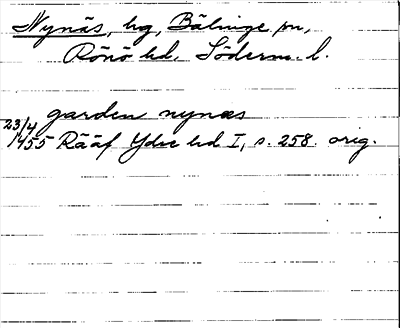 Nynäs, hg, Bälinge sn,
Rönö hd, Söderm. l.
garden nynæs
23/4
1455 Rääf Ydre hd I, s. 258. orig.